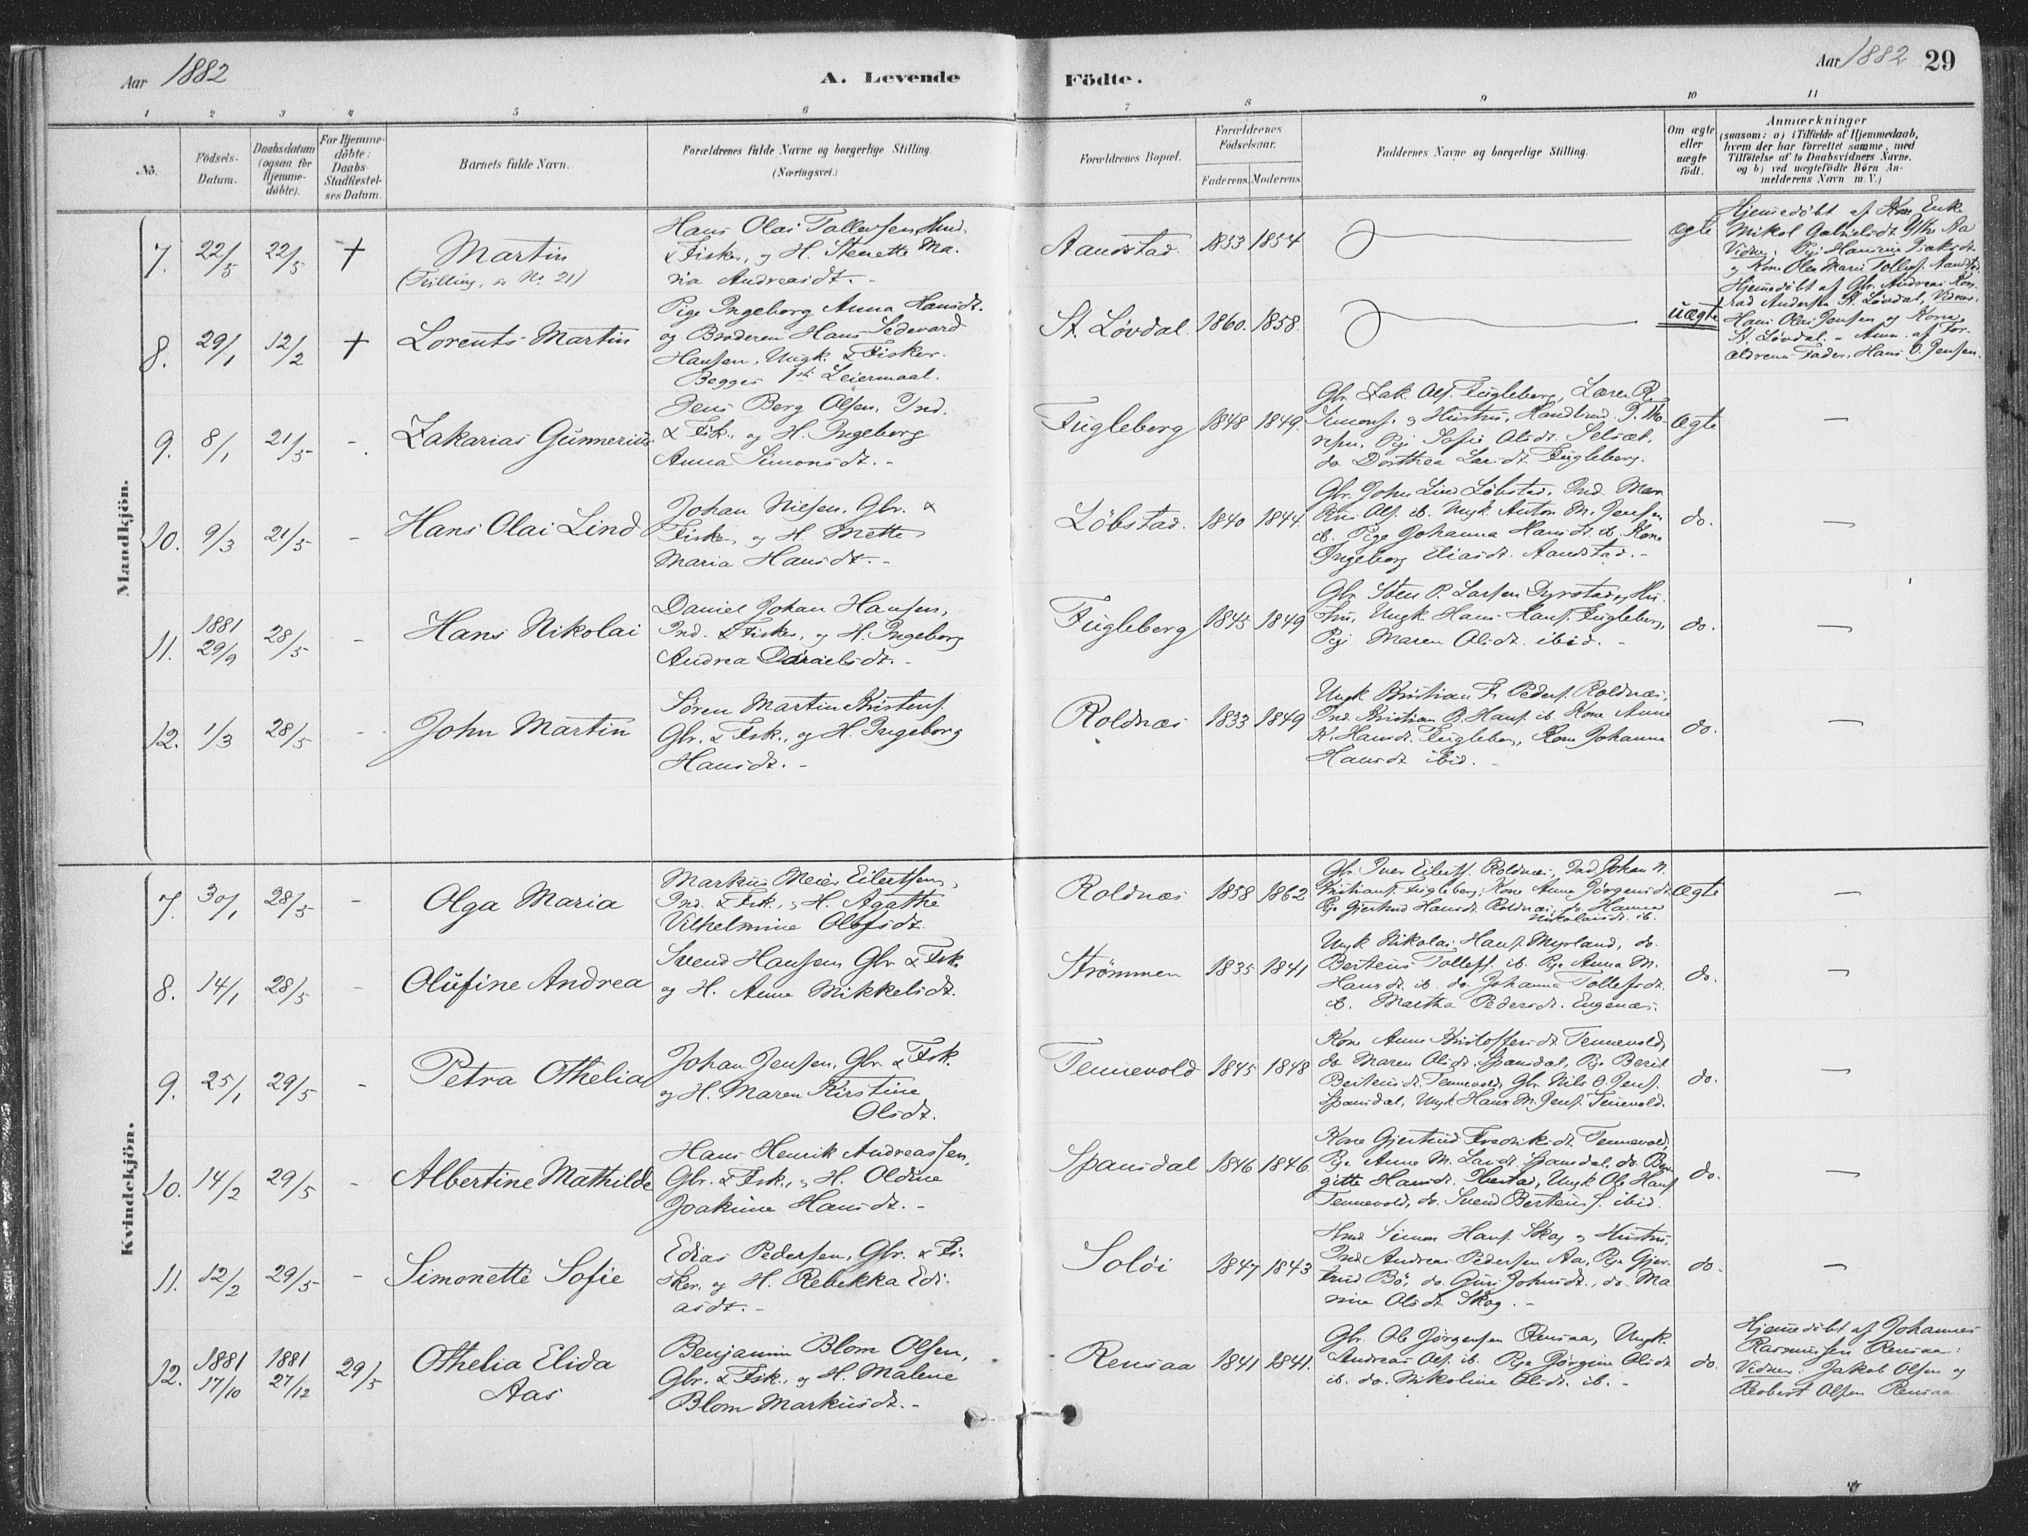 Aar 1882
A. Levende
Födte.
Aar 1882 29
1 2 3 4 5 6 7 8 9 10 11
No.
Födsels-
Datum.
Daabsdatum
(ogsaa for
Hjemme-
döbte).
For Hjemme-
döbte:
Daabs-
Stadfæstel-
ses Datum.
Barnets fulde Navn.
Forældrenes fulde Navne og borgerlige Stilling.
(Næringsvei.)
Forældrenes Bopæl.
Forældrenes
Födselsaar.
Faderens. Moderens.
Faddernes Navne og borgerlige Stilling.
Om ægte
eller
uægte
födt.
Anmærkninger
(saasom: a) i Tilfælde af Hjemmedaab,
hvem der har forrettet samme, med
Tilföielse af to Daabsvidners Navne.
og b) ved uægtefödte Börn An-
melderens Navn m. V.)
Mandkjön.
7. 22/5 22/5 + Martin
(Tvilling, s. No. 21)
Hans Olai Tollefsen, Ind.
& Fisker, og H. Stenette Ma-
ria Andreasdt. -
Aandstad. 1853 1854 ægte
Hjemmedøbt af Enke
Mikol Gabrielsdt.
Vidner: Pige
og Kone Olea Marie Tollefs. Aandstad.
8. 29/1 12/2 + Lorents Martin
Pige Ingeborg Anna Hansdt.
og Broderen Hans Sedevard
Hansen, Ungk. & Fisker.
Begges 1ste Leiermaal.
St. Løvdal. 1860. 1858. uægte
Hjemmedøbt af Gbr. Andreas Kon-
rad Andersen St. Løvdal, Vidner,
Hans Olai Jensen og Kone
St. Løvdal. - Anm. af For-
ældrenes Fader, Hans O. Jensen.
9. 8/1 21/5 - Zakarias Gunnerius
Jens Berg Olsen, Ind.
& Fisk., og H. Ingeborg
Anna Simonsdt. -
Fugleberg 1848 1849. Ægte -
Gbr. Isak Ols. Fugleberg, Lærer R.
Simons. og Hustru, Handlend. P. Tho-
resen, Pige Sofie Olsdt. Selsæt,
do Dorthea Larsdt. Fugleberg.
10. 9/3 21/5 - Hans Olai Lind
Johan Nilsen, Gbr. &
Fisker, og H. Mette
Maria Hansdt. -
Løbstad. 1840 1844. do. -
Gbr. John Lind Løbstad, Ind. Mar-
Ols. ib. Ungk. Anton M. Jensen
ib. Pige Johanna Hansdt. ib. Kone
Ingeborg Eliasdt. Aandstad. -
11. 1881 29/9 28/5 - Hans Nikolai
Daniel Johan Hansen,
Ind. & Fisker, og H. Ingeborg
Andrea Danielsdt. -
Fugleberg 1845 1849 do. -
Gbr. Sten P. Larsen Dyrstad og Hu-
stru, Ungk. Hans Hans. Fugleberg,
Pige Maren Olsdt. ibid. -
12. 1/3 28/5 - John Martin
Søren Martin Kristens.
Gbr. & Fisk., og H. Ingeborg
Hansdt. -
Roldnæs 1833 1849 do. -
Ungk. Kristian F. Peders. Roldnæs,
Ind. Kristian B. Hans. ib. Kone Anne
K. Hansdt. Fugleberg, Kone Johanna
Hansdt. ibid. -
Kvindekjön.
7. 30/1 28/5 - Olga Maria
Markus Meier Eilertsen,
Ind. & Fisk., og H. Agathe
Vilhelmine Olofsdt.
Roldnæs 1858 1862 Ægte -
Gbr. Iver Eilerts. Roldnæs, Ind. Johan N.
Kristians. Fugleberg, Kone Anne Jørgensdt.
Pige Gjertrud Hansdt. Roldnæs, do Hanna
Nikolaisdt. ib.
8. 14/1 28/5 - Olufine Andrea
Svend Hansen, Gbr. & Fisk.
og H. Anne Mikkelsdt.
Strømmen 1835 1841 do. -
Ungk. Nikolai Hans. Myrland, do.
Berteus Tollefs. ib. Pige Anna M.
Hansdt. ib. do. Johanna Tollefsdt.
ib. Martha Pedersdt. Engenæs.
9. 25/1 29/5 - Petra Othelia
Johan Jensen, Gbr. & Fisk.
og H. Maren Kirstine
Olsdt.
Tennevold 1845 1848 do. -
Kone Anne Kristoffersdt. Tennevold,
do Maren Olsdt. Spansdal, Pige Berit
Berteusdt. Tennevold, Gbr. Nils O. Jens.
Spansdal, Ungk. Hans M. Jens. Tennevold.
10. 14/2 29/5 - Albertine Mathilde
Hans Henrik Andreassen,
Gbr. & Fisk., og H. Oldine
Joakime Hansdt. -
Spansdal 1846 1846. do. -
Kone Gjertrud Fredriksdt. Tennevold,
Pige Anne M. Larsdt. Spansdal, do. Ber-
gitte Hansdt. Ibestad, Ungk. Ole Hans.
Tennevold, do. Svend Berteus S. ibid.
11. 12/2 29/5 - Simonette Sofie
Edias Pedersen, Gbr. & Fi-
sker, og H. Rebekka Edi-
asdt. -
Soløi 1847 1843 do. -
Ind. Simon Hans. Skog og Hustru,
Ind. Andreas Pedersen Aa, Pige Gjer-
trud Bø, do. Guri Johnsdt., do. Ma-
rine Olsdt. Skog. -
12. 1881 17/10 1881 27/12 29/5 Othelia Elida
Aas
Benjamin Blom Olsen,
Gbr. & Fisk., og H. Malene
Blom Markusdt. -
Rensaa 1841 1841. do.
Gbr. Ole Jørgensen Rensaa, Ungk.
Andreas Ols. ib. Pige Jørgine Olsdt.
ib. do. Nikoline Olsdt. ib. -
Hjemmedøbt af Johannes
Rasmussen Rensaa:
Vidner: Jakob Olsen og
Robert Olsen Rensaa